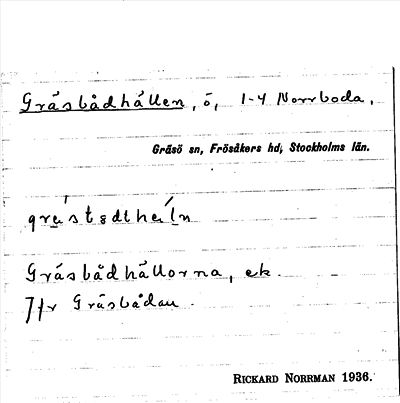 Gräsbådhällen, ö, 1-4 Norrboda.
Gräsö sn, Frösåkers hd, Stockholms län.
Gräsbådhällorna, ek.
Jfr Gräsbådan.
RICKARD NORRMAN 1936.